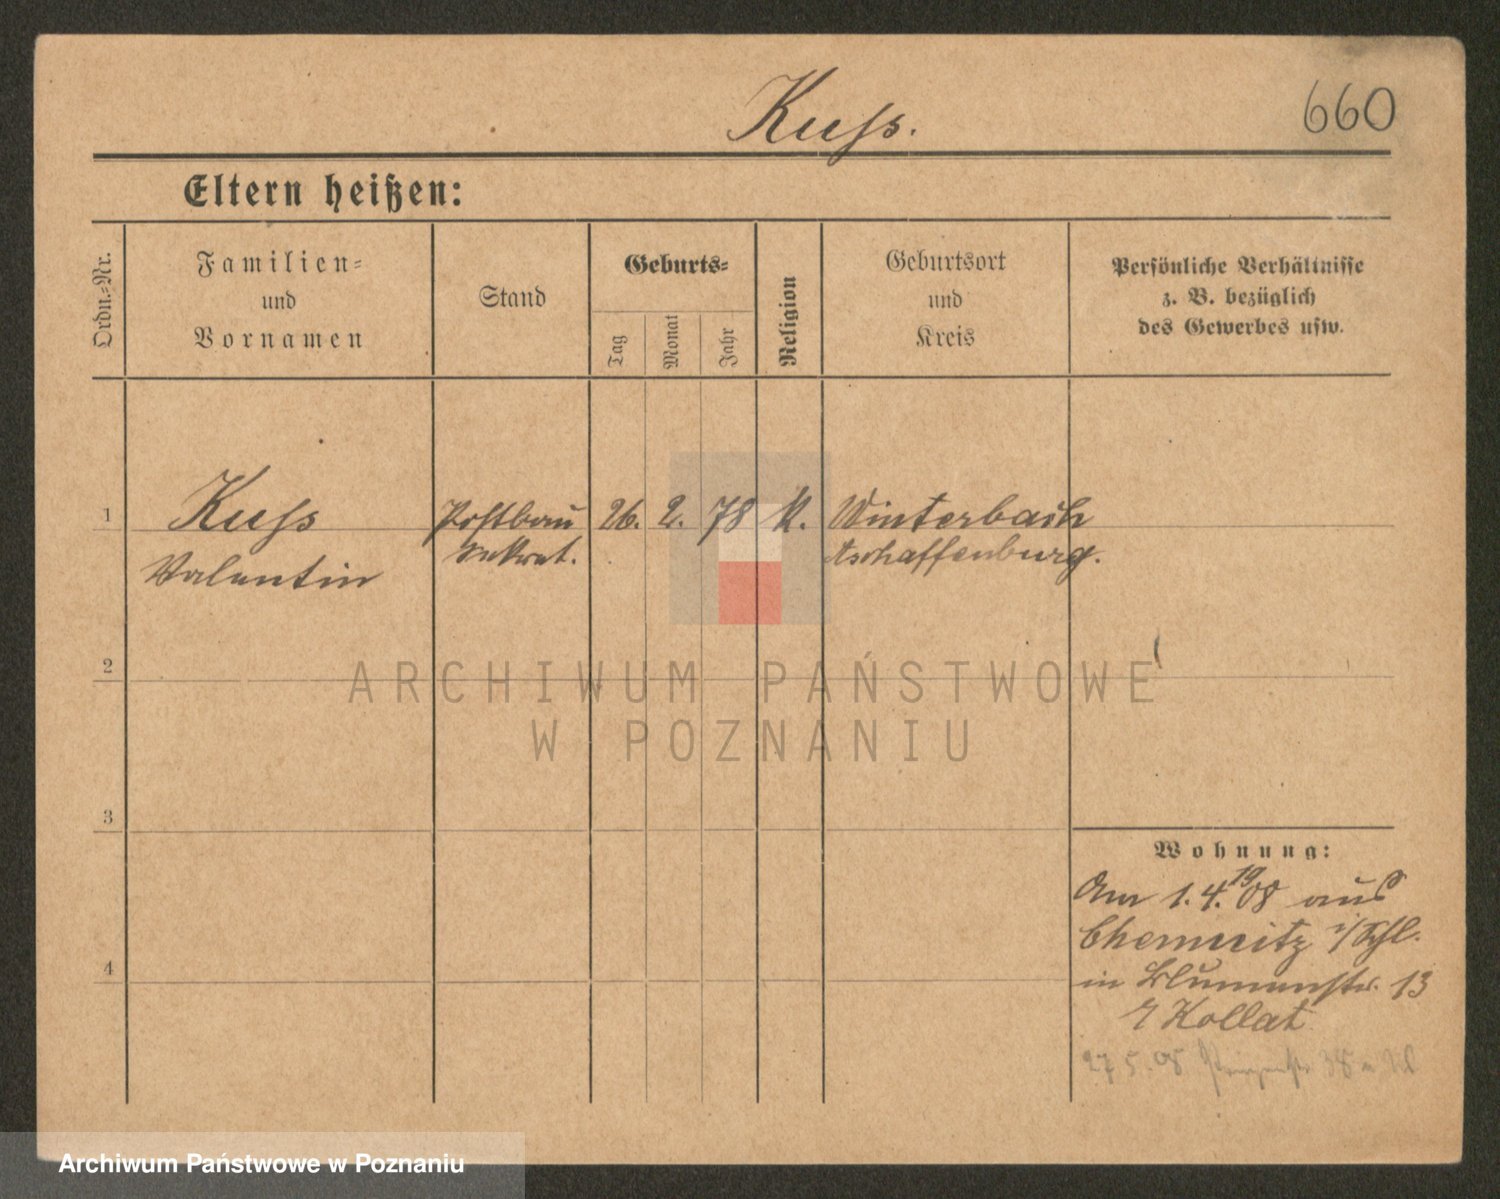 660
Kuſs.
Eltern heißen:
Ordn.=Nr.
Familien=
und
Vornamen
Stand
Geburts=
Tag
Monat
Jahr
Religion
Geburtsort
und
Kreis
Persönliche Verhältnisse
z. B. bezüglich
des Gewerbes usw.
1
Kuſs
Valentin
Postbau
Sekret.
26. 2. 78
K.
Winterbach
Aschaffenburg.
2
3
4
ARCHIWUM PAŃSTWOWE
W POZNANIU
Wohnung:
Am 1.4.1908 aus
Chemnitz i/
in Blumenstr. 13
Kollat
27 5. 08 38
Archiwum Państwowe w Poznaniu